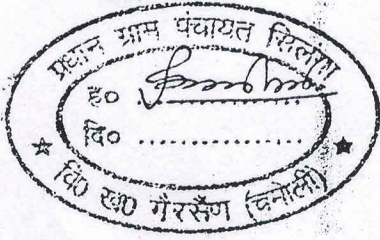 प्रधान ग्राम पंचायत
ह०
दि०
वि० ख० गैरसैंण (चमोली)